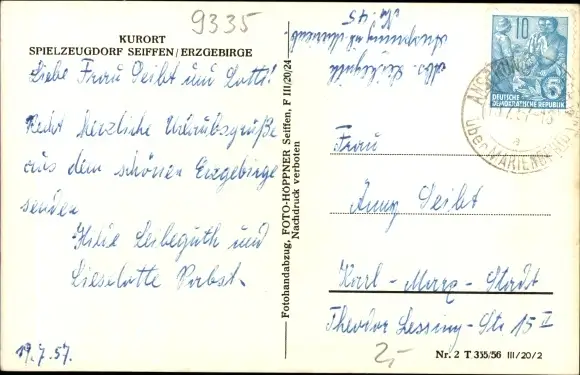 9335
KURORT
SPIELZEUGDORF SEIFFEN/ERZGEBIRGE
Liebe Frau Seibt und Lotti!
Recht herzliche Urlaubsgrüße
aus dem schönen Erzgebirge
senden
Hilde Leibeguth und
Lieselotte Pabst.
19.7.57.
Fotohandabzug, FOTO-HÖPPNER Seiffen, F III/20/24
Nachdruck verboten
Abs. Leibeguth
Ansprung üb. Marienb.
Nr. 45
10
DEUTSCHE
DEMOKRATISCHE REPUBLIK
ANSPRUNG
über MARIENBERG
a
Frau
Anny Seibt
Karl-Marx-Stadt
Theodor Lessing-Str 15 II
2,-
Nr. 2 T 355/56 III/20/2